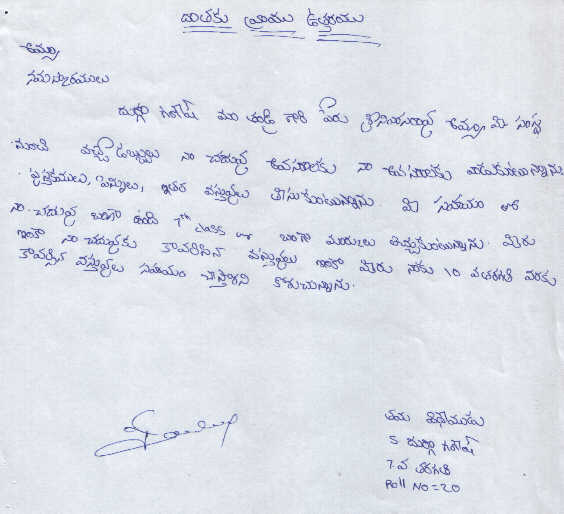 దాతకు వ్రాయు ఉత్తరము
అమ్మా,
నమస్కారములు
దుర్గా గణేష్ మా తండ్రి గారి పేరు శ్రీనివాసరావు అమ్మా, మీ సంస్థ
నుంచి వచ్చే డబ్బులు నా చదువు అవసరాలకు నా అవసరాలకు వాడుకుంటున్నాను
పుస్తకములు, పెన్నులు, ఇతర వస్తువులు తీసుకుంటున్నాను. మీ సహాయం తో
నా చదువు బాగా ఉంది 7th class లో బాగా మార్కులు తెచ్చుకుంటున్నాను. మీరు
ఇంకా నా చదువుకు కావలసిన వస్తువులు ఇంకా మీరు నాకు 10 వ తరగతి వరకు
కావల్సిన వస్తువులు సహాయం చేస్తారని కోరుచున్నాను.
తమ విధేయుడు
S దుర్గా గణేష్
7 వ తరగతి
Roll No = 20